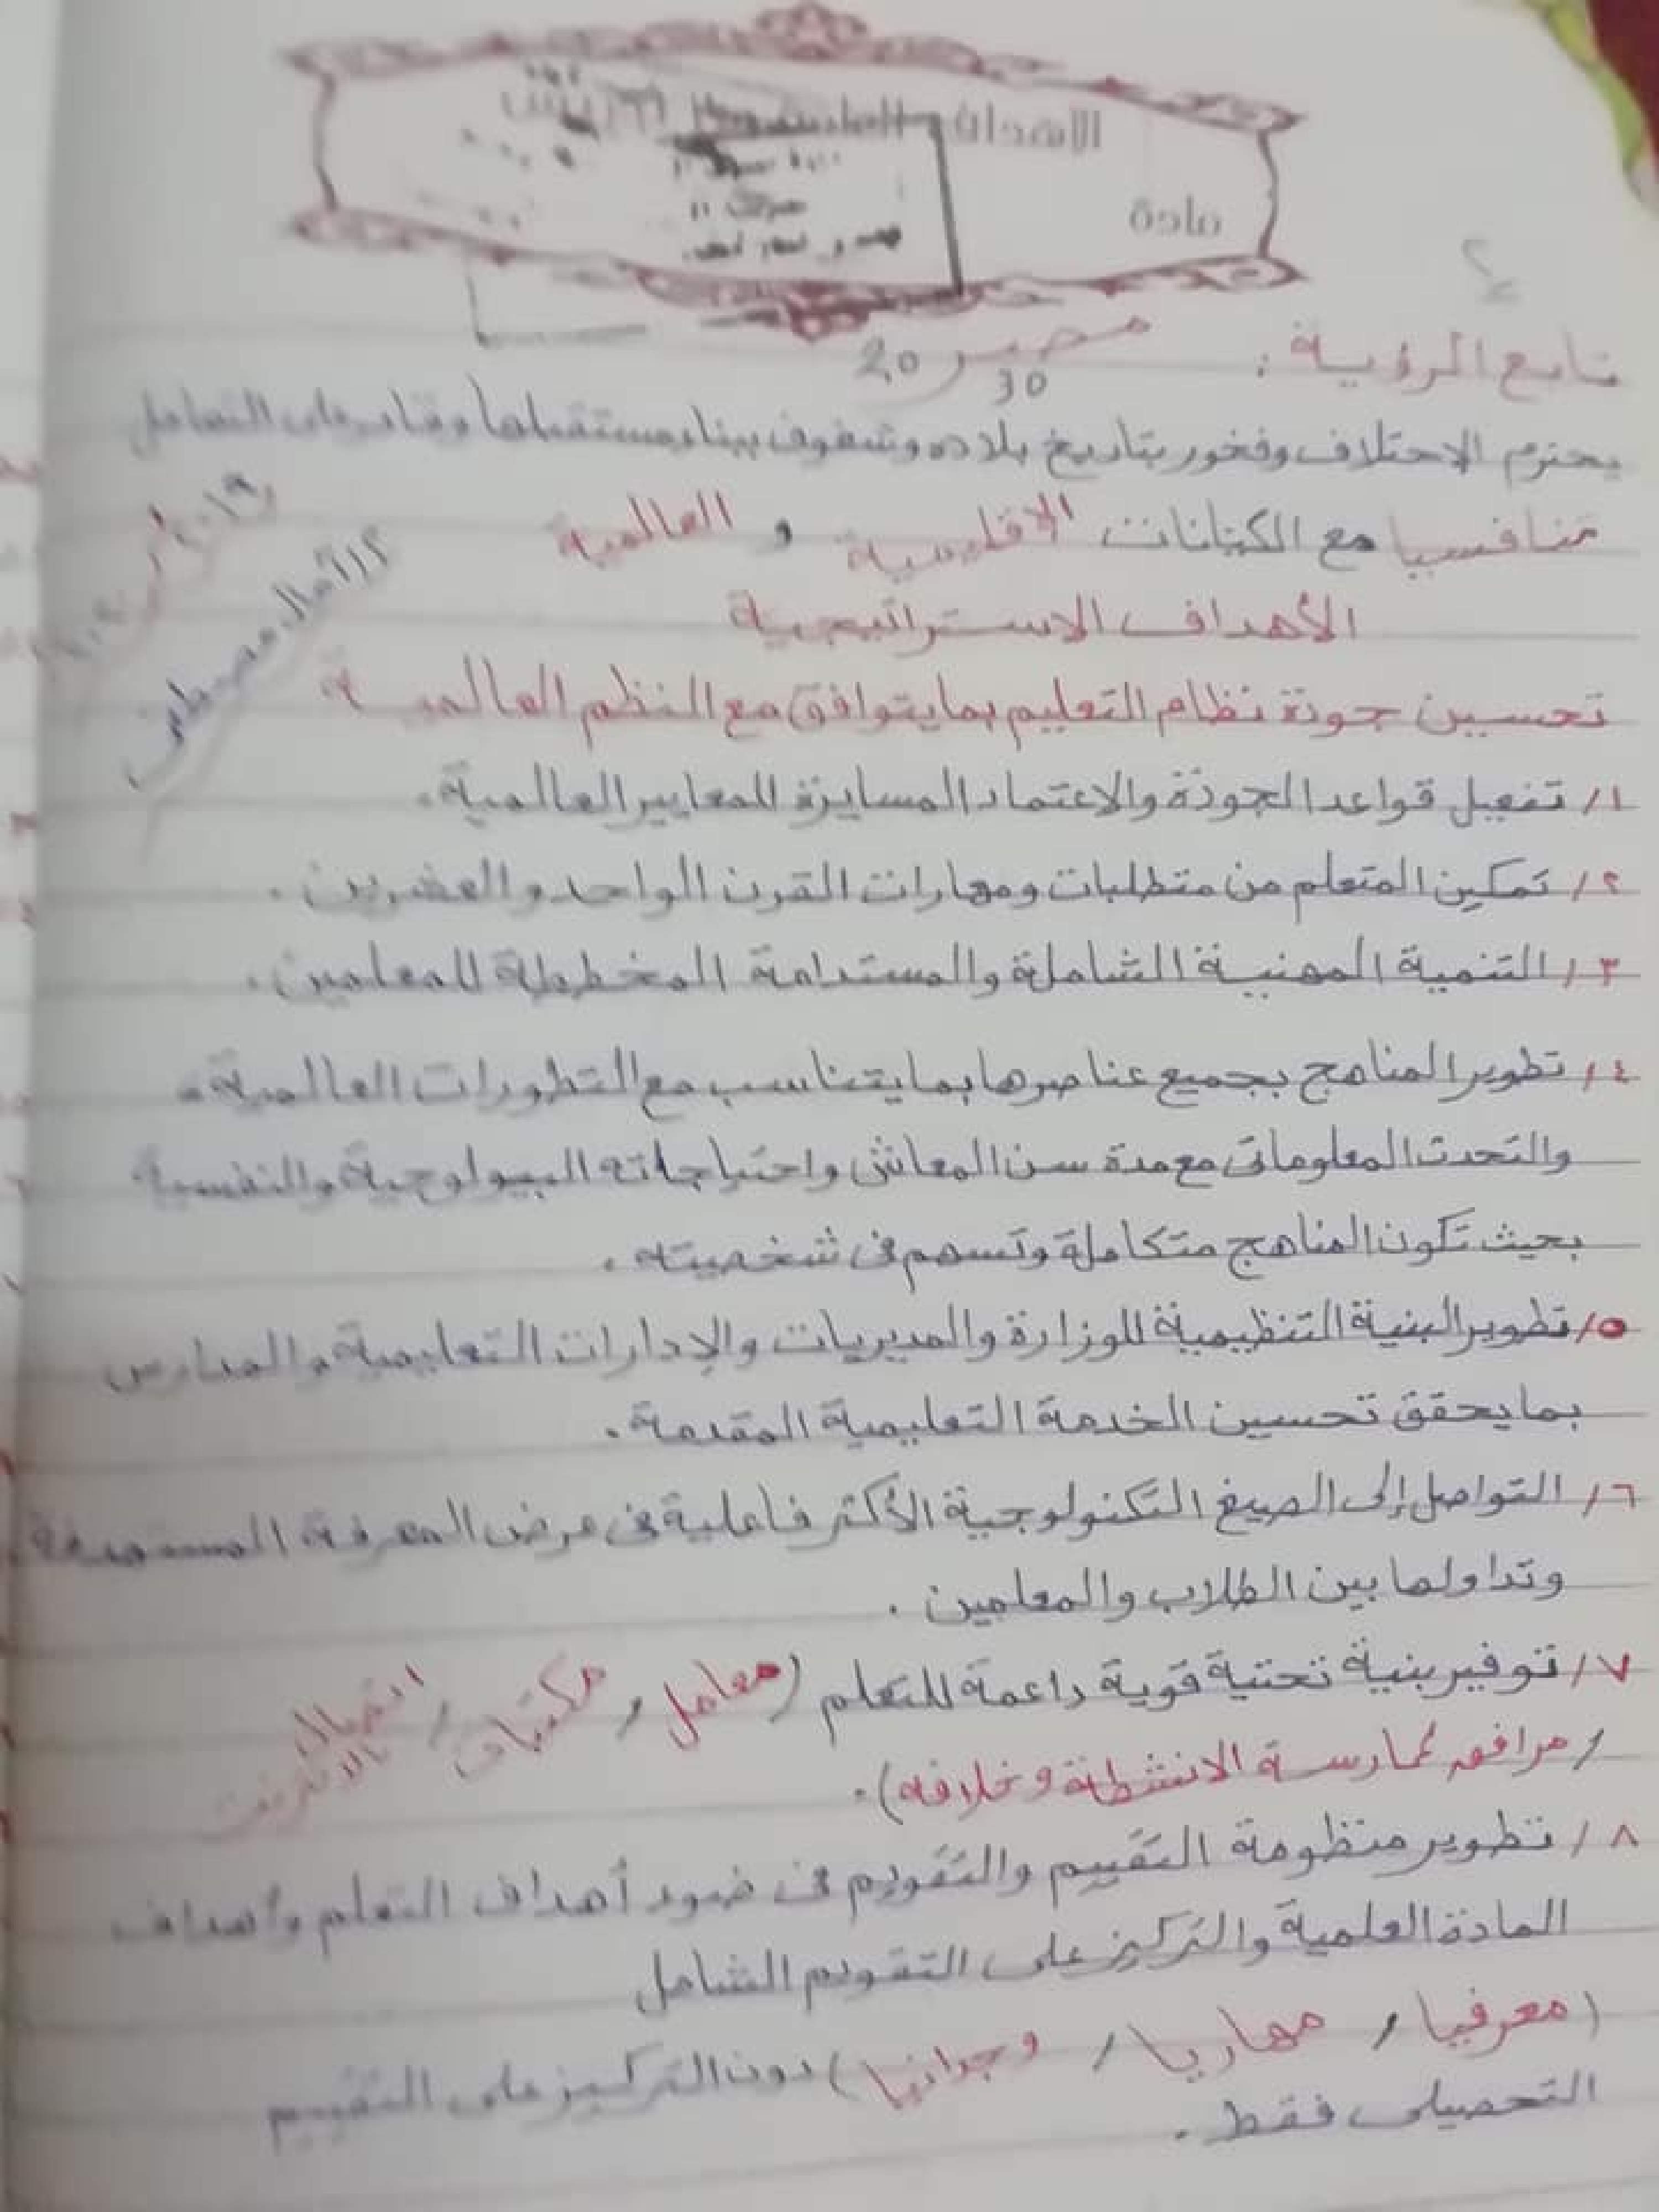 مادة
٢
تابع الرؤية : مصر 2030
يحترم الاختلاف وفخور بتاريخ بلاده وشغوف ببناء مستقبلها وقادر على التعامل
تنافسيا مع الكيانات الاقليمية و العالمية
الأهداف الاستراتيجية
أ/ آمال مصطفى
تحسين جودة نظام التعليم بما يتوافق مع النظم العالمية
١/ تفعيل قواعد الجودة والاعتماد المسايرة للمعايير العالمية.
٢/ تمكين المتعلم من متطلبات ومهارات القرن الواحد والعشرين .
٣/ التنمية المهنية الشاملة والمستدامة المخططة للمعلمين .
٤/ تطوير المناهج بجميع عناصرها بما يتناسب مع التطورات العالمية
والتحدث المعلوماتى مع مدة سن المعاش واحتياجاته البيولوجية والنفسية
بحيث تكون المناهج متكاملة وتسهم فى شخصيته .
٥/ تطوير البنية التنظيمية للوزارة والمديريات والإدارات التعليمية والمدارس
بما يحقق تحسين الخدمة التعليمية المقدمة .
٦/ التواصل إلى الصيغ التكنولوجية الأكثر فاعلية فى عرض المعرفة المستهدفة
وتداولها بين الطلاب والمعلمين .
٧/ توفير بنية تحتية قوية داعمة للتعلم (معامل / مكتبات / اتصال بالانترنت
/ مرافق لممارسة الانشطة وخلافه).
٨/ تطوير منظومة التقييم والتقويم فى ضوء أهداف التعلم وأهداف
المادة العلمية والتركيز على التقويم الشامل
(معرفيا / مهاريا / وجدانيا) دون التركيز على التقييم
التحصيلى فقط .